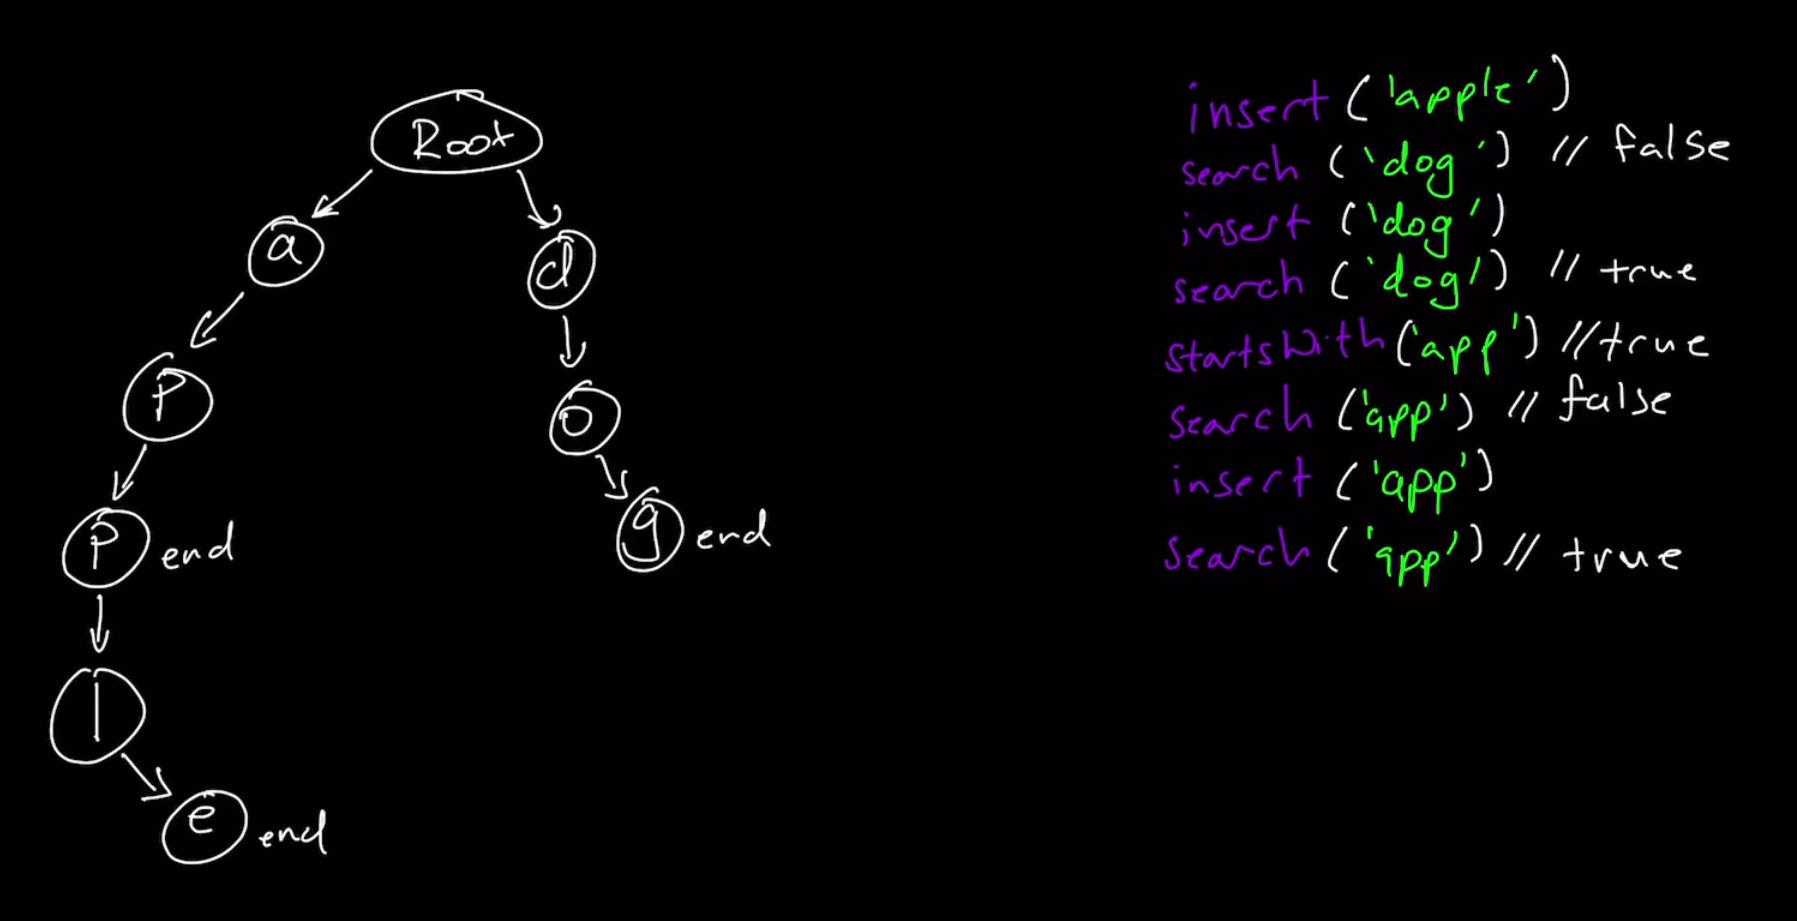 Root
a
d
p
o
p end
g end
l
e end
insert ('apple')
search ('dog') // false
insert ('dog')
search ('dog') // true
startsWith ('app') // true
search ('app') // false
insert ('app')
search ('app') // true